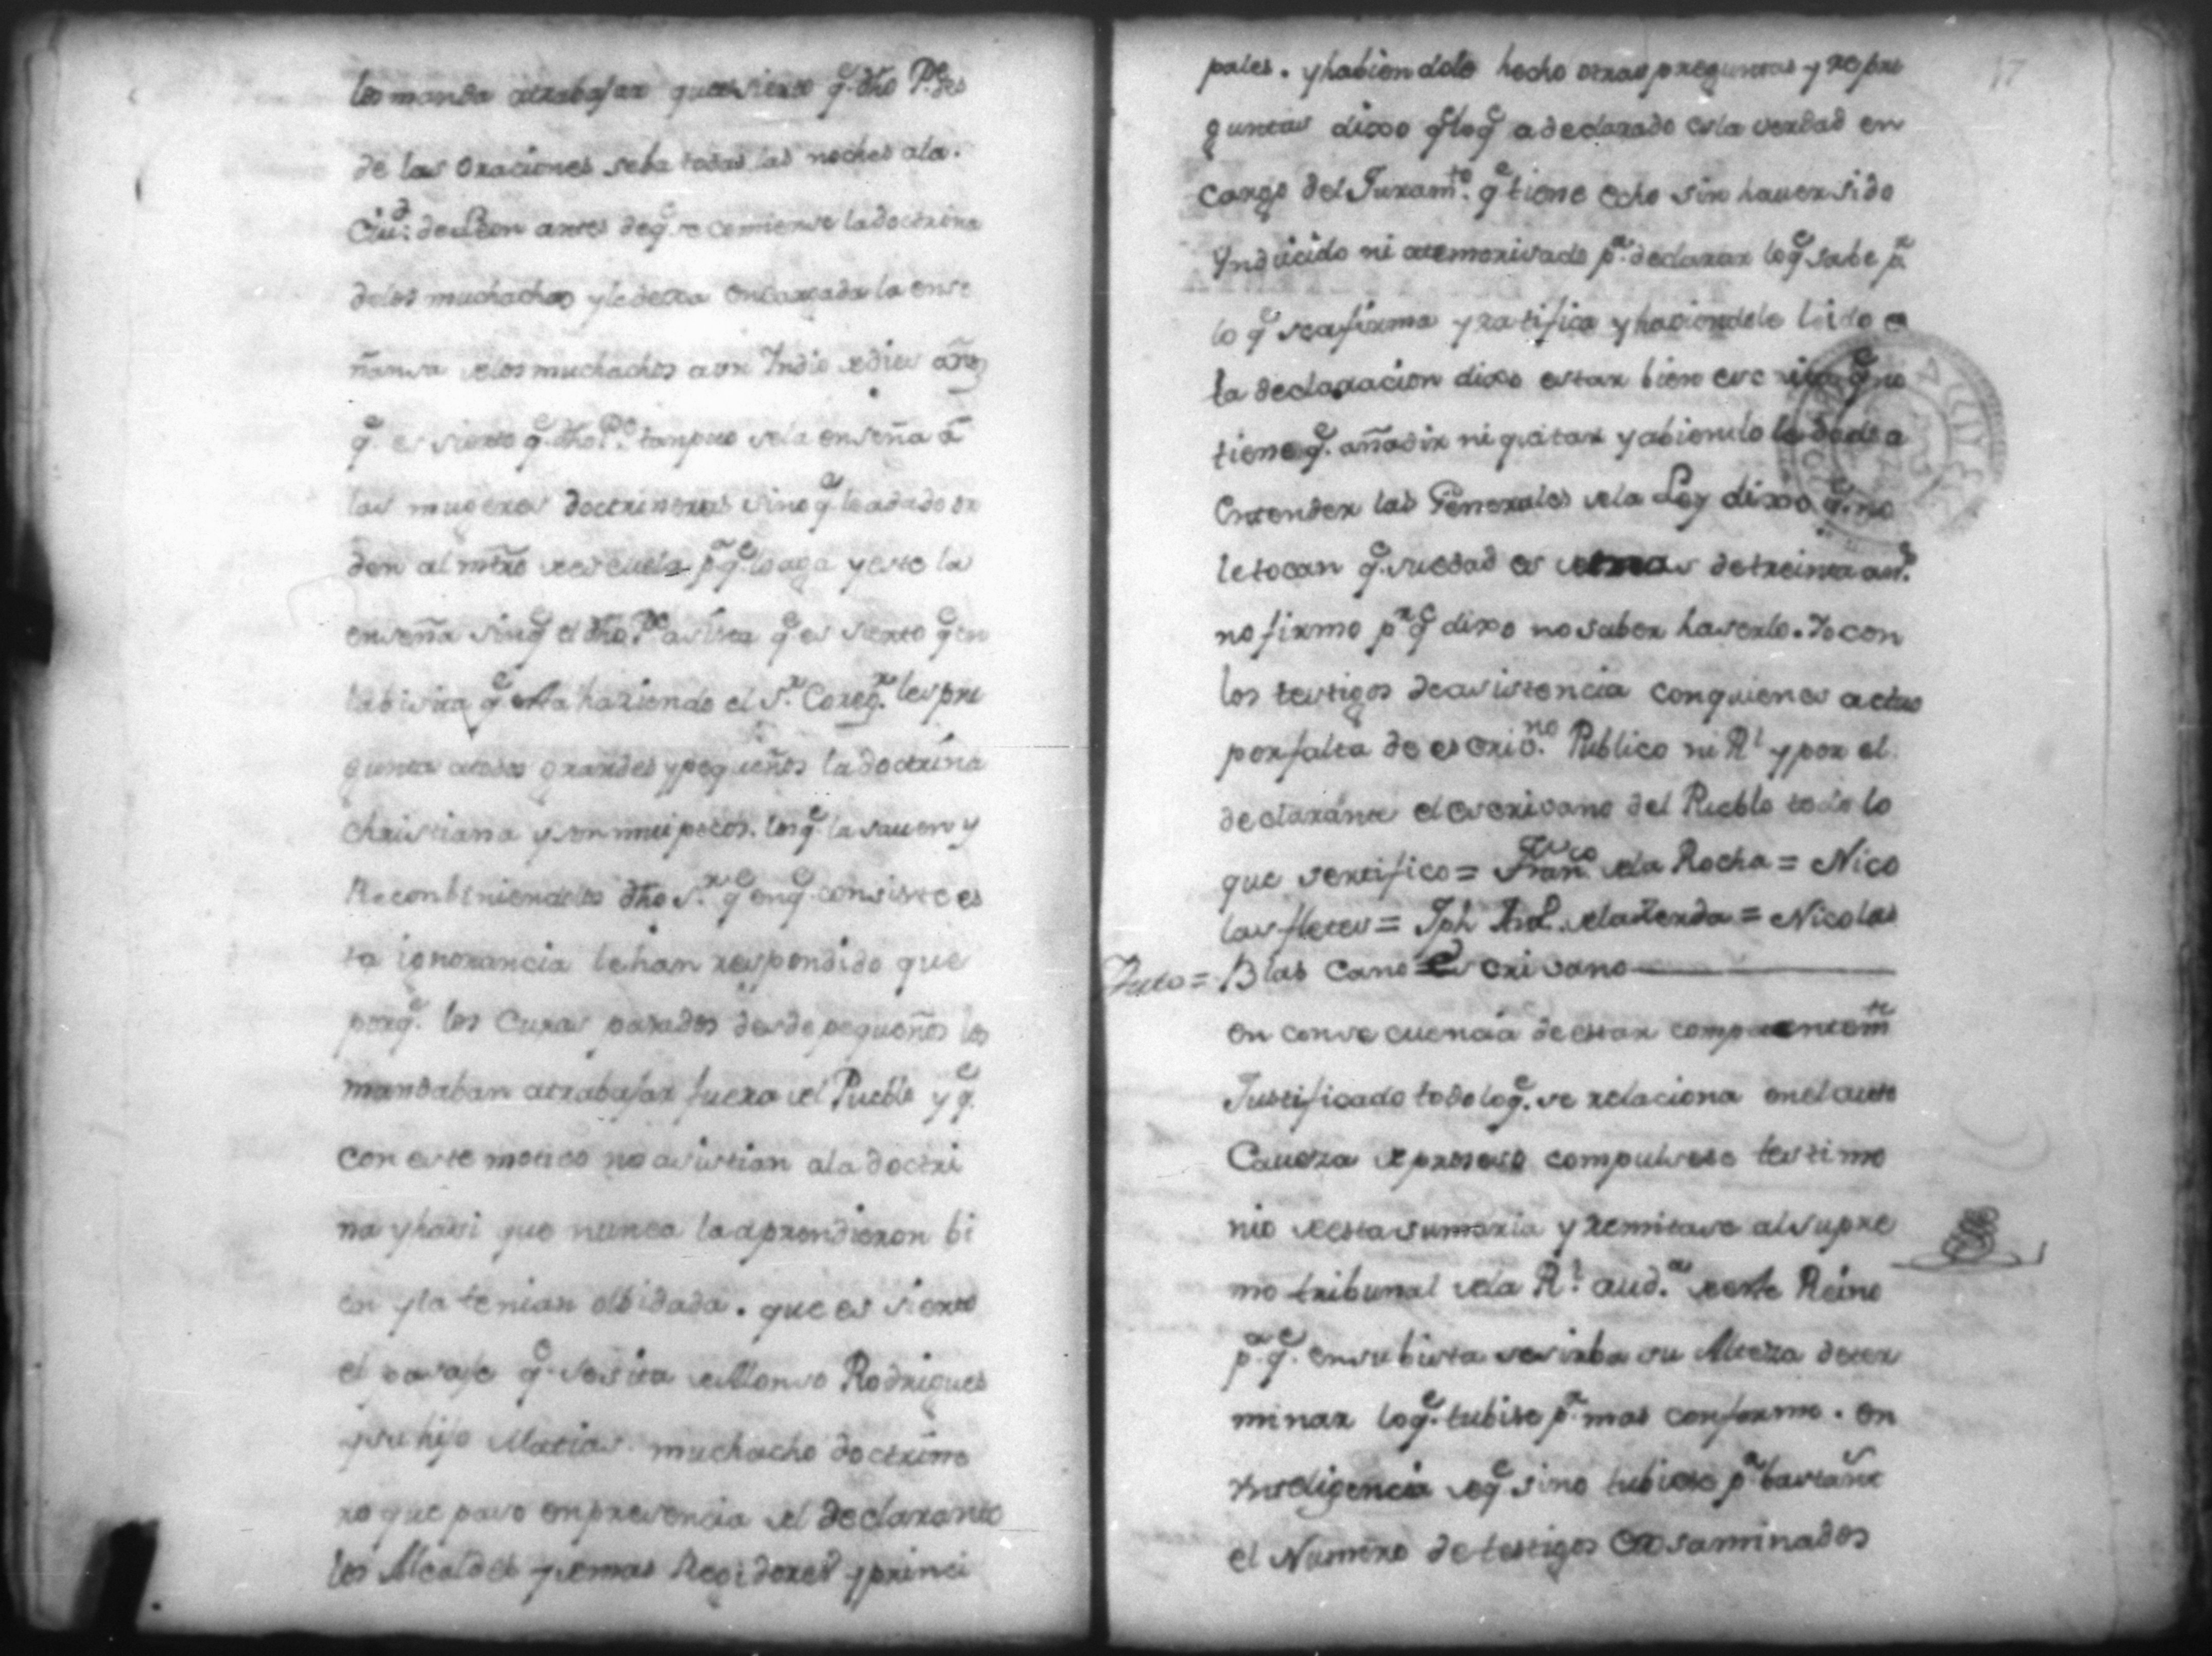 los manda atrabajar que es sierto q.e dho P.e des
de las Oraciones seba todas las noches ala.
Ciu.d de Leon antes deq.e se comiense la doctrina
delos muchachos yledexa encargada la ense
ñansa delos muchachos aun Indio dedies años
q.e es sierto q.e dho P.e tanpoco sela enseña á
las mugeres doctrineras sino q.e leadado or
den al mtro de escuela p.a q.e lo aga y este la
enseña sinq.e el dho P.e asista q.e es sierto q.e en
labisita q.e esta haziendo el S.r Coreg.r les pre
gunta atodos grandes ypequeños la doctrina
christiana y son mui pocos. los q.e la sauen y
Reconbiniendoles dho S.r q.e enq.e consiste es
ta ignorancia lehan respondido que
porq.e los Curas pasados desde pequeños los
mandaban atrabajar fuera del Pueblo y q.e
con este motibo no asistian ala doctri
na yhasi que nunca la aprendieron bi
en yla tenian olbidada. que es sierto
el pasaje q.e sesita de Alonso Rodrigues
ysu hijo Matias muchacho doctrine
ro que paso enpresencia del declarante
los Alcaldes ydemas Regidores yprinci
17
pales. yhabiendole hecho otras preguntas y repre
guntas dixo q.e loq.e adeclarado esla verdad en
cargo del Juram.to q.e tiene echo sin hauer sido
Inducido ni atemorisado p.a declarar loq.e sabe p.r
lo q.e seafirma yratifica yhaciendole leido e
ta declaracion dixo estar bien escrita q.e no
tiene q.e añadir ni quitar yabiendo le dado a
Entender las Generales dela Ley dixo q.e no
letocan q.e suedad es demas detreinta an.s
no firmo p.r q.e dixo no saber haserlo. Yo con
los testigos deasistencia conquienes actuo
porfalta de escriv.no Publico ni R.l ypor el
declarante el escrivano del Pueblo todo lo
que sertifico = Fran.co dela Rocha = Nico
las fletes = Jph Ant. = Nicolas
Auto = Blas Cano Escrivano
en consecuencia deestar competentem.te
Justificado todoloq.e se relaciona enelauto
Caveza deproseso compulsese testimo
nio deesta sumaria yremitase alsupre
mo tribunal dela R.l aud.a deeste Reino
p.a q.e ensubista sesirba su Alteza deter
minar loq.e tubise p.r mas conforme. en
Inteligencia deq.e sino tubiese p.r bastante
el Numero detestigos Exsaminados